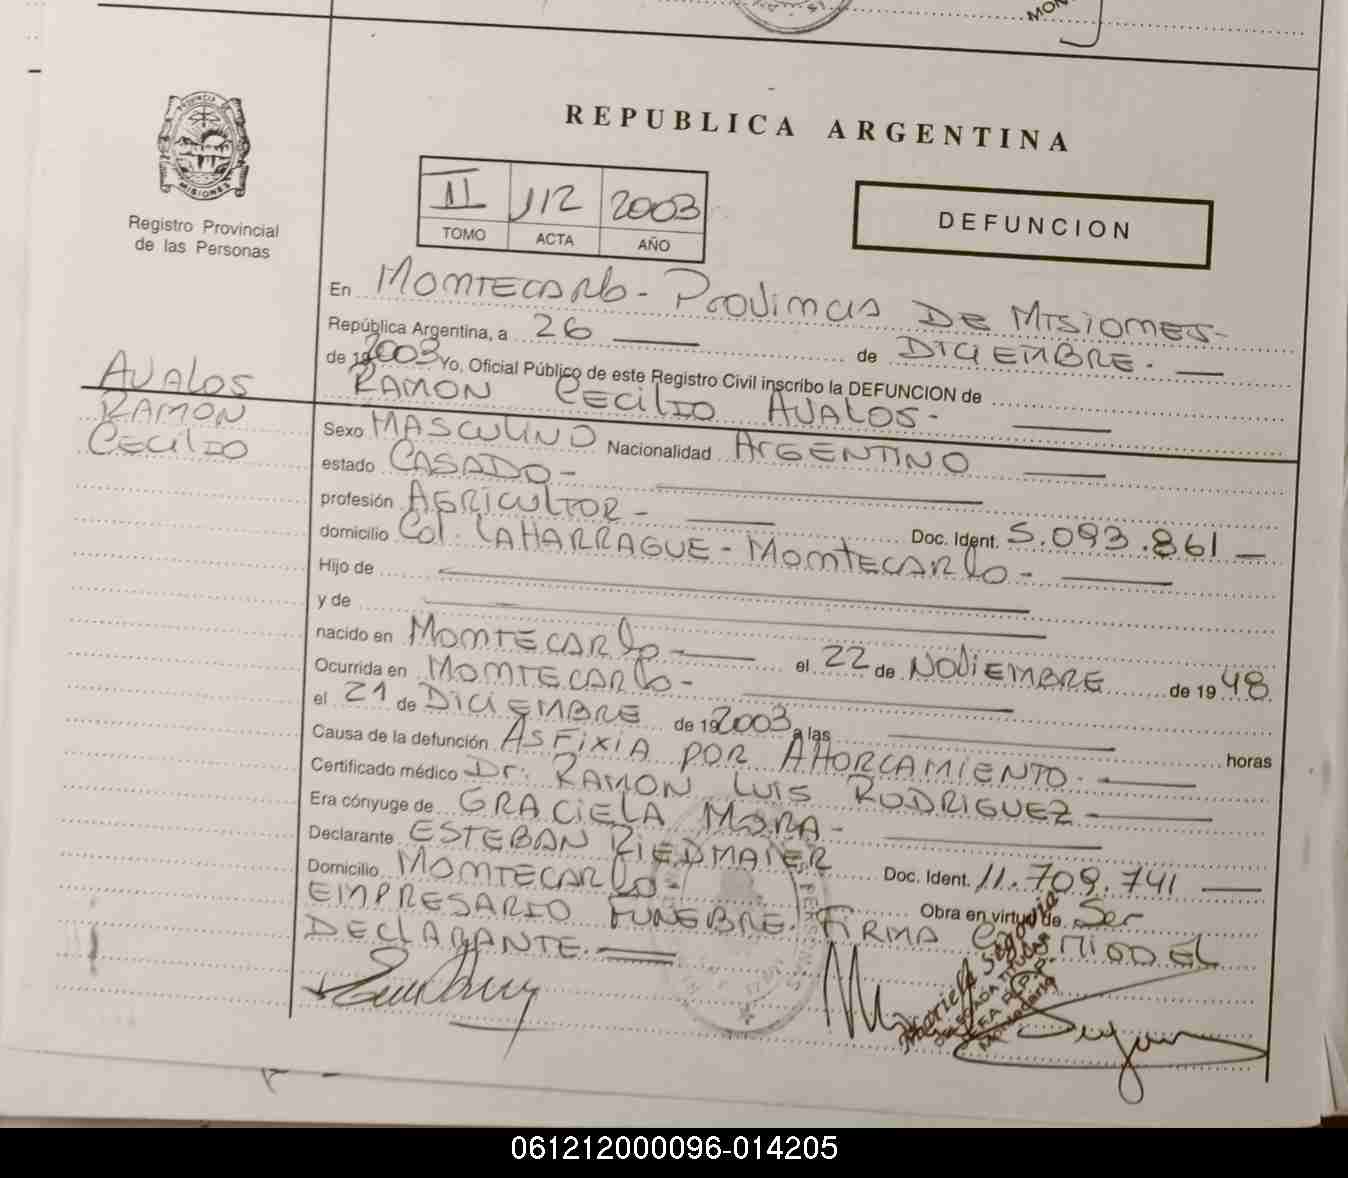 REPUBLICA ARGENTINA
PROVINCIA DE
MISIONES
Registro Provincial
de las Personas
II 112 2003
TOMO ACTA AÑO
DEFUNCION
En MONTECARLO - PROVINCIA DE MISIONES-
República Argentina, a 26 de DICIEMBRE.
de 19 2003 Yo, Oficial Público de este Registro Civil inscribo la DEFUNCION de
RAMON CECILIO AVALOS-
AVALOS
RAMON
CECILIO
Sexo MASCULINO Nacionalidad ARGENTINO
estado CASADO-
profesión AGRICULTOR- Doc. Ident. 5.093.861
domicilio COL. LAHARRAGUE - MONTECARLO-
Hijo de
y de
nacido en MONTECARLO el 22 de NOVIEMBRE de 1948
Ocurrida en MONTECARLO-
el 21 de DICIEMBRE de 19 2003 a las horas
Causa de la defunción ASFIXIA POR AHORCAMIENTO.
Certificado médico Dr. RAMON LUIS RODRIGUEZ
Era cónyuge de GRACIELA MORA-
Declarante ESTEBAN RIEDMAIER Doc. Ident. 11.709.741
Domicilio MONTECARLO- Obra en virtud de Ser
EMPRESARIO FUNEBRE. FIRMA EL
DECLARANTE.
061212000096-014205